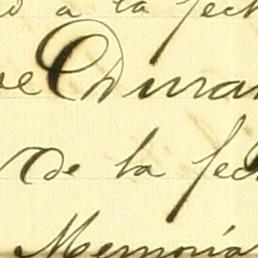 a la fech
Duran
de la fech
Memoria